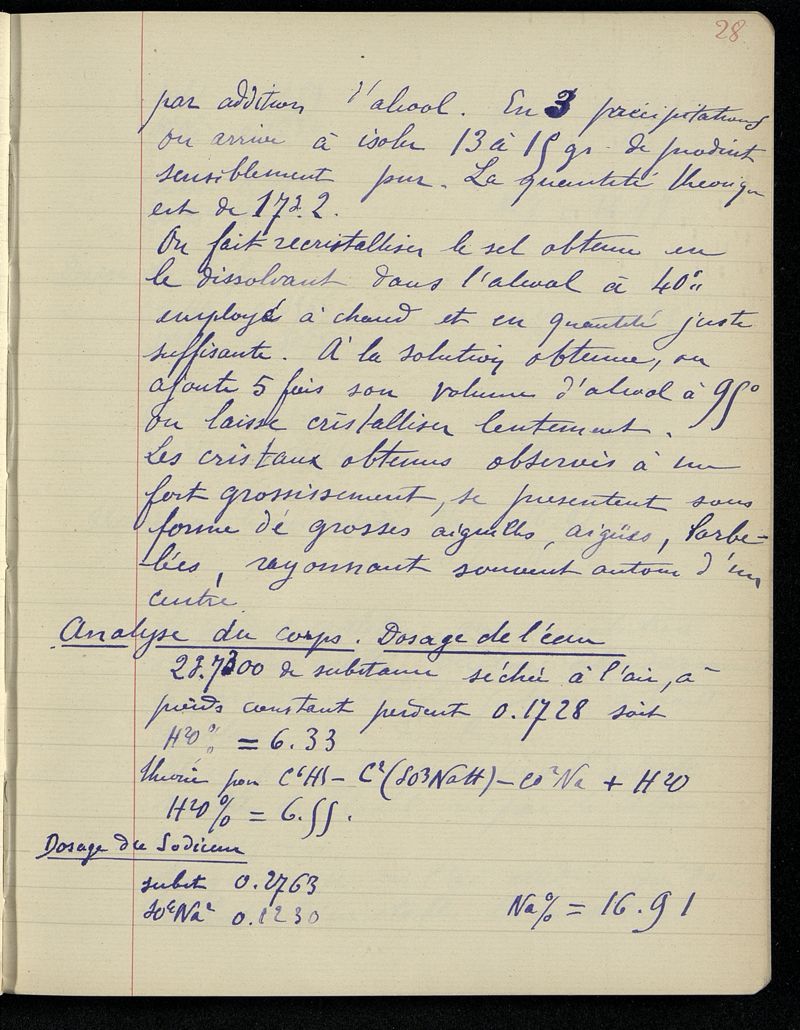 28
par addition d'alcool. En 3 précipitations
on arrive à isoler 13 à 15 gr. de produit
sensiblement pur. La quantité théorique
est de 17g.2.
On fait recristalliser le sel obtenu en
le dissolvant dans l'alcool à 40°
employé à chaud et en quantité juste
suffisante. A la solution obtenue, on
ajoute 5 fois son volume d'alcool à 95°
on laisse cristalliser lentement.
Les cristaux obtenus observés à un
fort grossissement, se presentent sous
forme de grosses aiguilles, aigües, barbe-
lées, rayonnant souvent autour d'un
centre.
Analyse du corps. Dosage de l'eau
2g.7300 de substance séchée à l'air, à
poids constant perdent 0.1728 soit
H²O % = 6.33
théorie pour C⁶H⁵ - C²(SO³NaH) - CO²Na + H²O
H²O % = 6.55.
Dosage du Sodium
subst 0.2763
SO⁴Na² 0.1230
Na % = 16.91